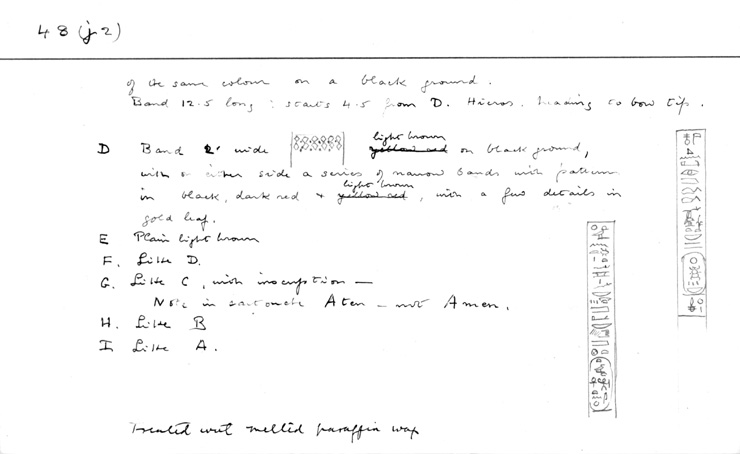 48 (j2)
of the same colour on a black ground.
Band 12.5 long : starts 4.5 from D. Hieros. heading to bow tip.
D Band 2 wide light brown yellow red on black ground,
with on either side a series of narrow bands with pattern
in black, dark red + light brown yellow red, with a few details in
gold leaf.
E Plain light brown
F. Like D.
G. Like C, with inscription —
Note in cartouche Aten – not Amen.
H. Like B
I. Like A.
Treated with melted paraffin wax